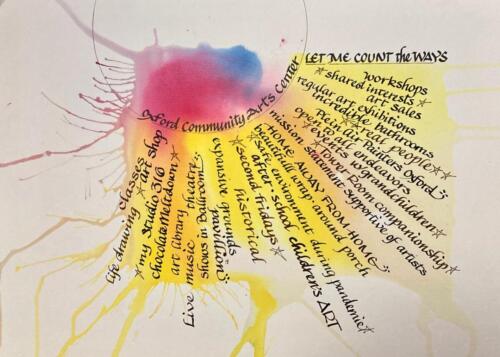 LET ME COUNT the WAYS
Oxford Community Arts Center
workshops
☆ shared interests ☆
art sales
regular art exhibitions
incredible ballrooms
☆ real people ☆☆
Plein air Painters Oxford
open to all endeavors
☆ events ☆ grandchildren ☆
Tower Room companionship ☆
mission statement supportive of artists
HOME AWAY FROM HOME
beautiful wrap-around porch
☆ safe environment during pandemic ☆
after-school children's ART
☆ second fridays ☆
historical
expansive grounds
pavilion
shows in Ballroom
Live music theatre
art library
chocolate Meltdown
☆ my Studio 316
☆ art shop
life drawing classes